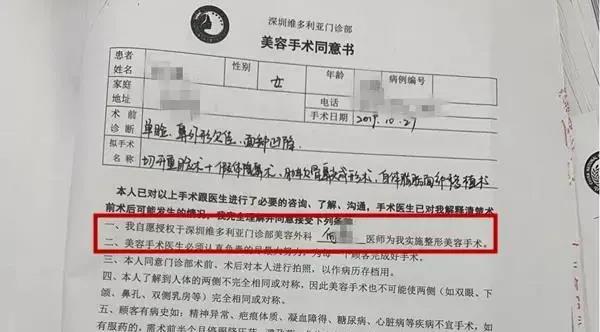 深圳维多利亚门诊部
美容手术同意书
患者姓名 性别 女 年龄 病例编号
家庭地址 电话
手术日期 2019.10.27
术前诊断 单睑、鼻外形欠佳、面部凹陷.
拟手术名称 切开重睑术+假体隆鼻术、 自体脂肪面部移植术
本人已对以上手术跟医生进行了必要的咨询、了解、沟通,手术医生已对我解释清楚术
前术后可能发生的情况,我完全理解并同意接受下列条
一、我自愿授权于深圳维多利亚门诊部美容外科 医师为我实施整形美容手术。
二、美容手术医生必须认真负责的尽最大努力,为每一个顾客完成好手术。
三、本人同意门诊部术前、术后对本人进行拍照,以作病历存档用。
四、本人了解到人体的两侧不完全相同或对称,因此美容手术也不可能使两侧(如双眼、下
颌、鼻孔、双侧乳房等)完全相同或对称。
五、顾客有病史如:精神异常、疤痕体质、凝血障碍、糖尿病、心脏病等疾病不宜手术,如
有服药的,需术前半个月停服